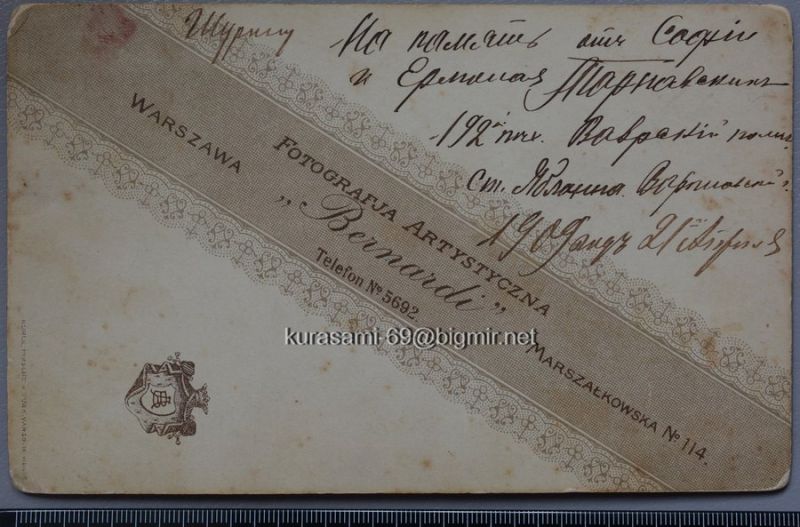 Шурину
На память отъ Софіи
и Ермолая Тарнавскихъ
192й пех. Ваврскій полкъ
ст. Яблонна Варшавской г.
1909 годъ 21го Апреля
WARSZAWA
FOTOGRAFJA ARTYSTYCZNA
„Bernardi”
Telefon № 5692.
MARSZAŁKOWSKA № 114.
kurasami-69@bigmir.net